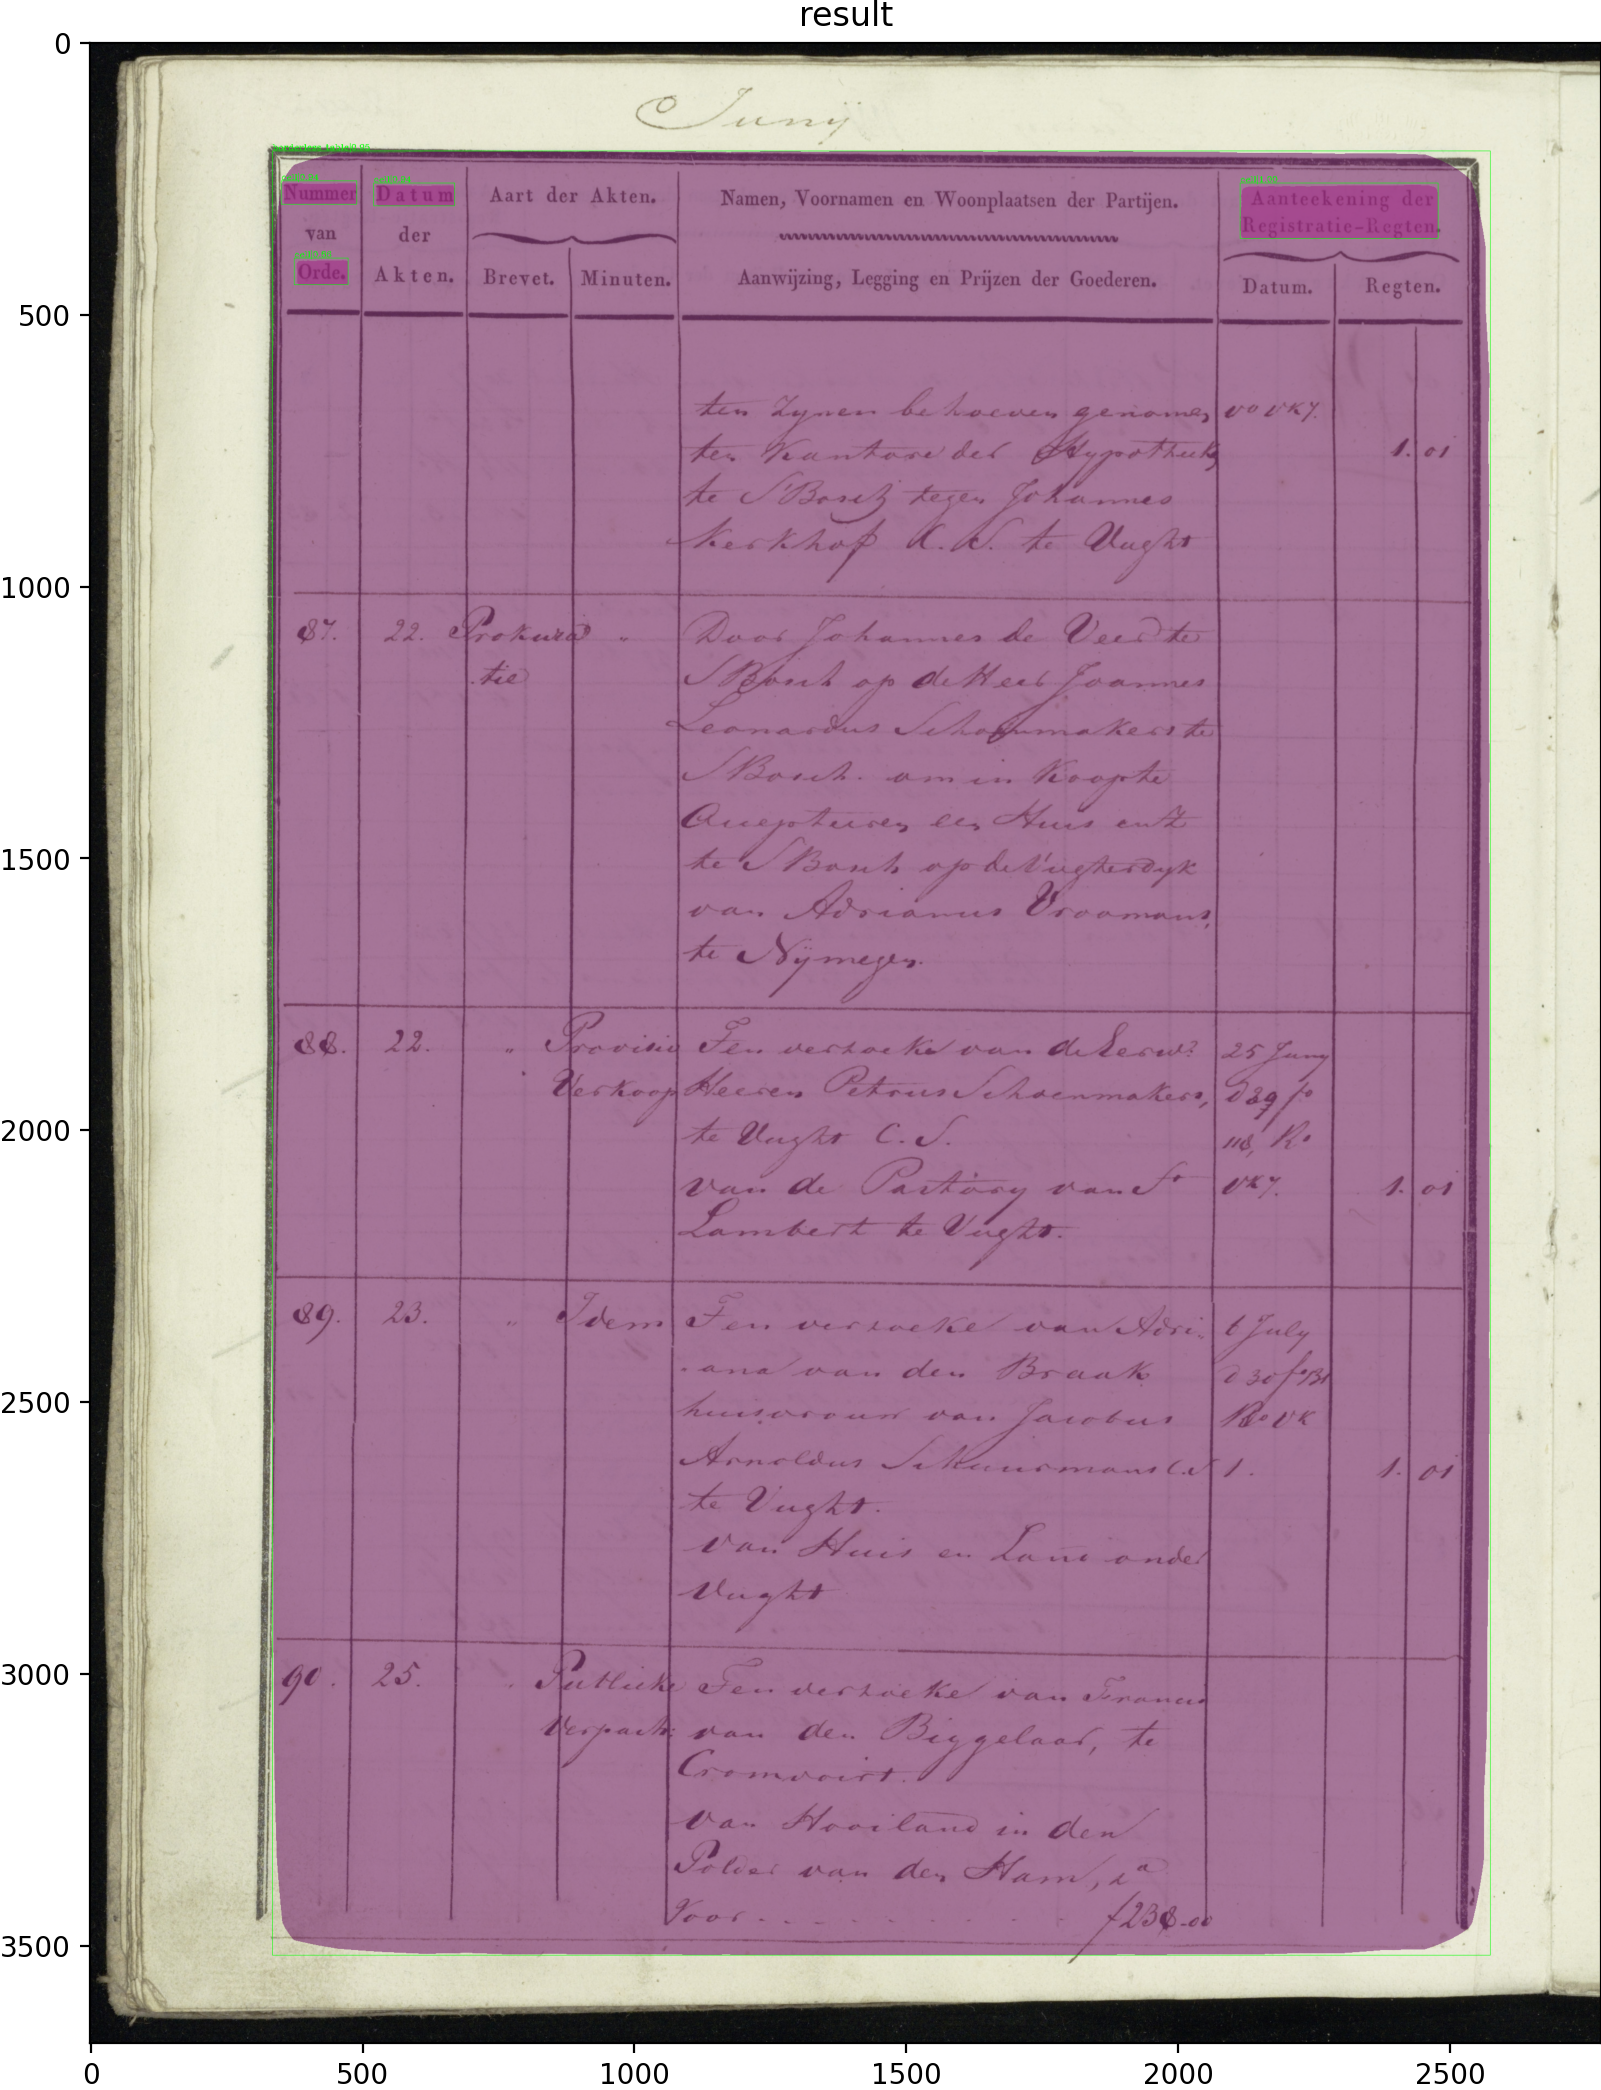 result
Junij
Nummer van Orde.
Datum der Akten.
Aart der Akten.
Brevet.
Minuten.
Namen, Voornamen en Woonplaatsen der Partijen.
Aanwijzing, Legging en Prijzen der Goederen.
Aanteekening der
Registratie-Regten.
Datum.
Regten.
ten zynen behoeven genomen vo vk 7.
ten Kantore der Hypotheek 1. 01
te S'Bosch tegen Johannes
Kerkhof C. S. te Vught
87. 22. Prokura " Door Johannes de Veer te
tie S'Bosch op de Heer Joannes
Leonardus Schoenmakers te
S'Bosch. om in Koop te
een Huis
te S'Bosch op de Vugterdyk
van Adrianus Vroomans,
te Nijmegen.
88. 22. " Provisio Ten verzoeke van de Eerw? 25 Juny
Verkoop Heeren Petrus Schoenmakers, D 29 fo
te Vught C. S. 118, Ro
van de Pastory van St vk 7. 1. 01
Lambert te Vught.
89. 23. " Idem Ten verzoeke van Adri- 6 July
ana van den Braak D 30 fo
huisvrouw van Jacobus Ro vk
Arnoldus Schuurmans C.S 1. 1. 01
te Vught.
van Huis en Land onder
Vught
90. 25. " Publieke Ten verzoeke van Francis
Verpacht: van den Biggelaar, te
Cromvoirt.
van Hooiland in den
Polder van den Ham,
Voor - - - - - f238-00
0
500
1000
1500
2000
2500
3000
3500
0 500 1000 1500 2000 2500